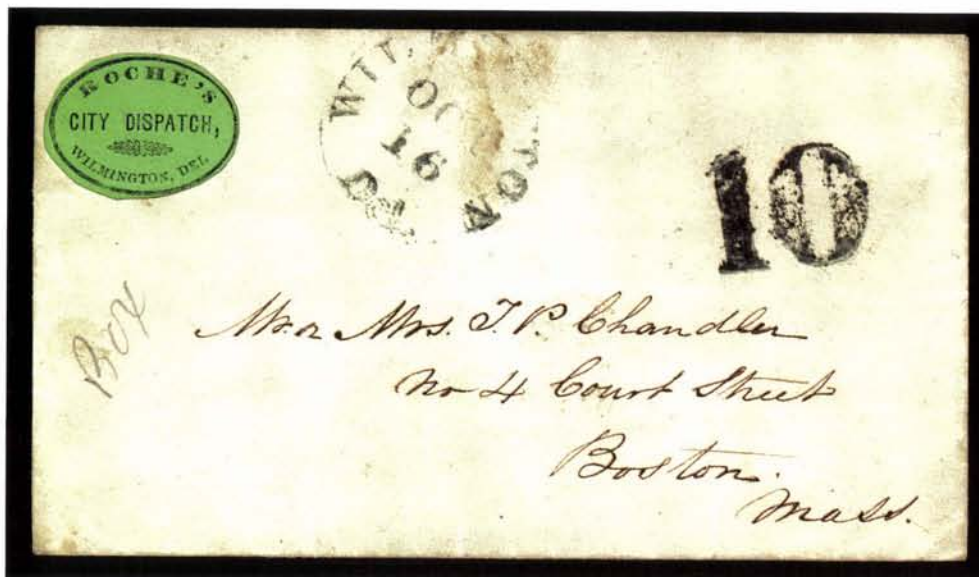 ROCHE'S
CITY DISPATCH,
WILMINGTON, DEL.
WIL TON
OC
16
10
Box
Mr. or Mrs. T. P. Chandler
No 4 Court Street
Boston.
Mass.